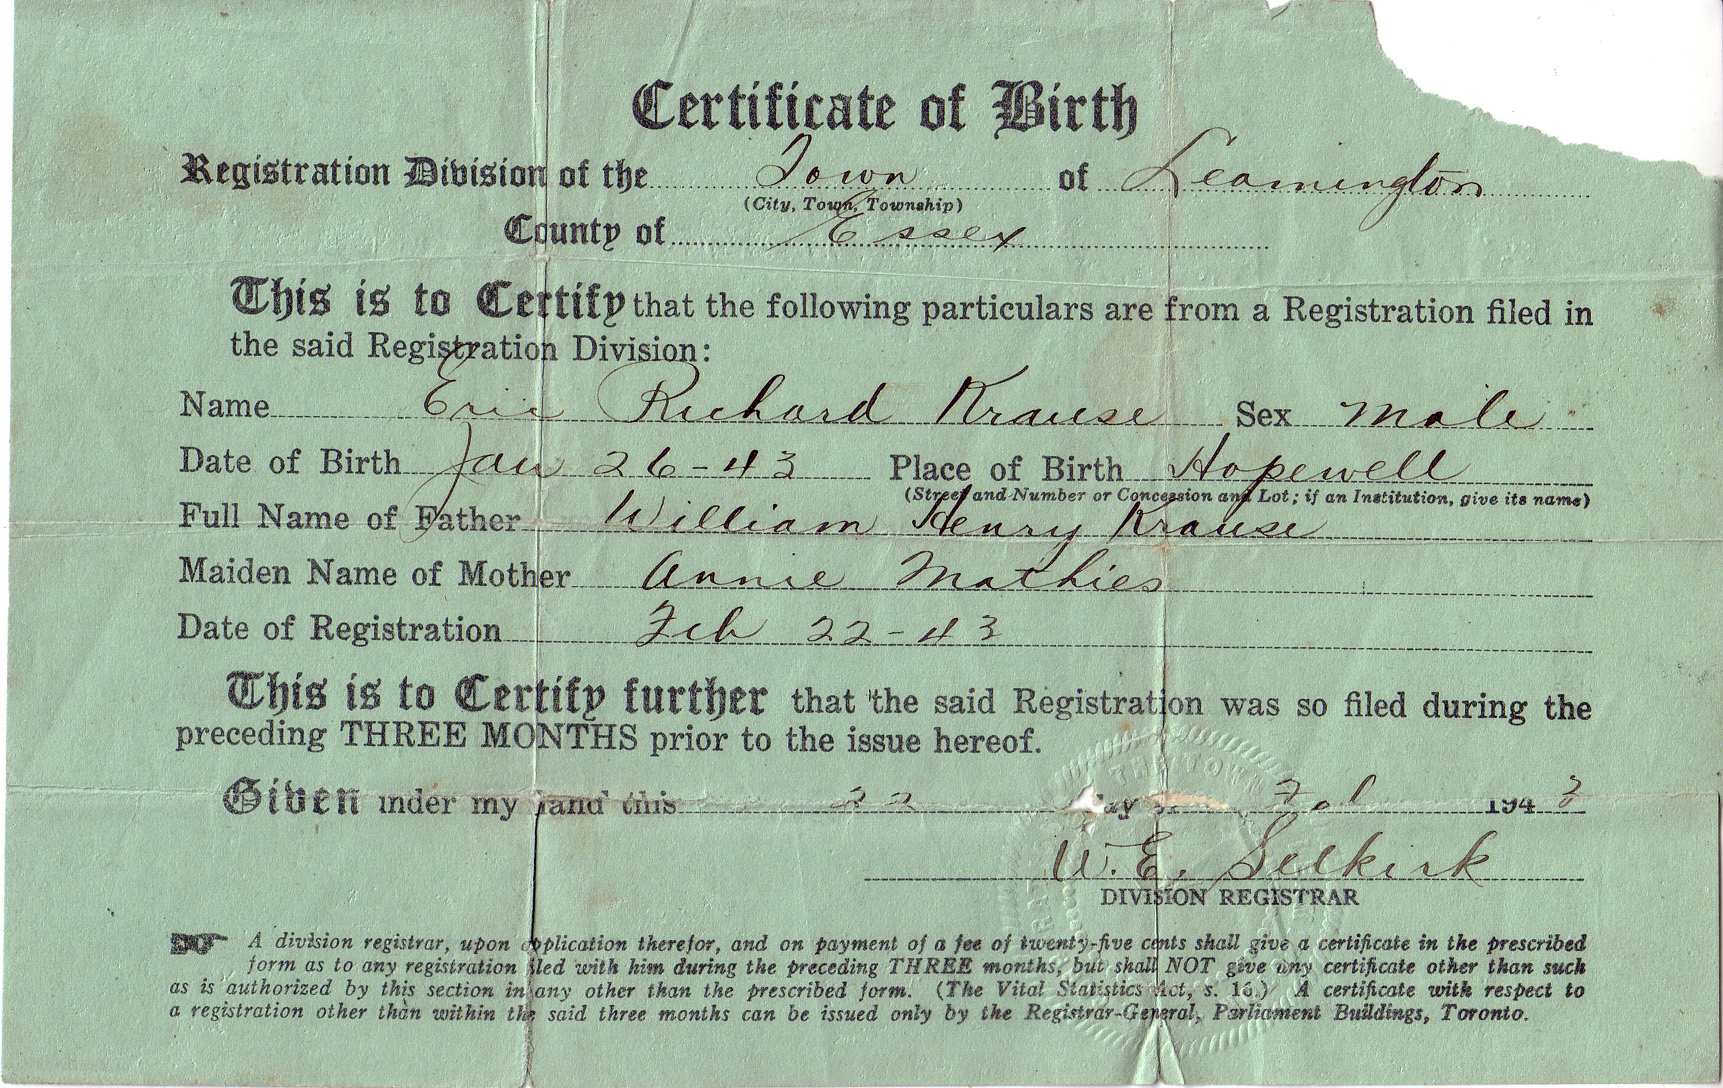 Certificate of Birth
Registration Division of the Town of Leamington
(City, Town, Township)
County of Essex
This is to Certify that the following particulars are from a Registration filed in
the said Registration Division:
Name Eric Richard Krause Sex Male
Date of Birth Jan 26-43 Place of Birth Hopewell
(Street and Number or Concession and Lot; if an Institution, give its name)
Full Name of Father William Henry Krause
Maiden Name of Mother Annie Mathies
Date of Registration Feb 22-43
This is to Certify further that the said Registration was so filed during the
preceding THREE MONTHS prior to the issue hereof.
Given under my hand this 22 day of Feb 1943
W. E. Selkirk
DIVISION REGISTRAR
THE TOWN
A division registrar, upon application therefor, and on payment of a fee of twenty-five cents shall give a certificate in the prescribed
form as to any registration filed with him during the preceding THREE months, but shall NOT give any certificate other than such
as is authorized by this section in any other than the prescribed form. (The Vital Statistics Act, s. 16.) A certificate with respect to
a registration other than within the said three months can be issued only by the Registrar-General, Parliament Buildings, Toronto.